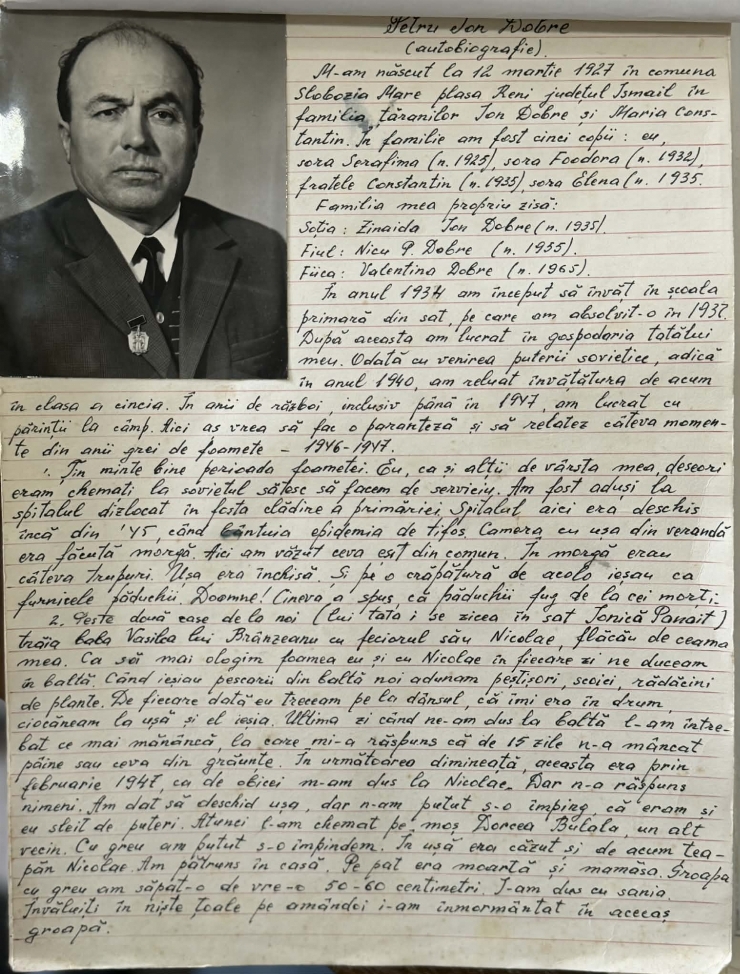 Petru Ion Dobre
(autobiografie).
M-am născut la 12 martie 1927 în comuna
Slobozia Mare plasa Reni județul Ismail în
familia țăranilor Ion Dobre și Maria Cons-
tantin. În familie am fost cinci copii : eu,
sora Serafima (n. 1925), sora Feodora (n. 1932),
fratele Constantin (n. 1935), sora Elena (n. 1935.
Familia mea propriu zisă:
Soția : Zinaida Ion Dobre (n. 1935).
Fiul : Nicu P. Dobre (n. 1955).
Fiica : Valentina Dobre (n. 1965).
În anul 1934 am început să învăț în școala
primară din sat, pe care am absolvit-o în 1937.
După aceasta am lucrat în gospodoria tatălui
meu. Odată cu venirea puterii sovietice, adică
în anul 1940, am reluat învățătura de acum
în clasa a cincia. În anii de război, inclusiv până în 1947, am lucrat cu
părinții la câmp. Aici aș vrea să fac o paranteză și să relatez câteva momen-
te din anii grei de foamete – 1946-1947.
1. Țin minte bine perioada foametei. Eu, ca și alții de vârsta mea, deseori
eram chemați la sovietul sătesc să facem de serviciu. Am fost aduși la
spitalul dizlocat în fosta clădire a primăriei. Spitalul aici era deschis
încă din '45, când bântuia epidemia de tifos. Camera cu ușa din verandă
era făcută morgă. Aici am văzut ceva eșit din comun. În morgă erau
câteva trupuri. Ușa era închisă. Și pe o crăpătură de acolo ieșau ca
furnicele păduchii. Doomne! Cineva a spus că păduchii fug de la cei morți.
2. Peste două case de la noi (lui tata i se zicea în sat Ionică Panait)
trăia baba Vasilca lui Brânzeanu cu feciorul său Nicolae, flăcău de ceama
mea. Ca să mai ologim foamea eu și cu Nicolae în fiecare zi ne duceam
în baltă. Când ieșiau pescarii din baltă noi adunam peștișori, scoici, rădăcini
de plante. De fiecare dată eu treceam pe la dânsul, că îmi era în drum,
ciocăneam la ușă și el ieșia. Ultima zi când ne-am dus la baltă l-am între-
bat ce mai mănâncă, la care mi-a răspuns că de 15 zile n-a mâncat
pâine sau ceva din grăunțe. În următoarea dimineață, aceasta era prin
februarie 1947, ca de obicei m-am dus la Nicolae. Dar n-a răspuns
nimeni. Am dat să deschid ușa, dar n-am putut s-o împing că eram și
eu sleit de puteri. Atunci l-am chemat pe moș Dorcea Bulala, un alt
vecin. Cu greu am putut s-o împindem. În ușă era căzut și de acum țea-
păn Nicolae. Am pătruns în casă. Pe pat era moartă și mamăsa. Groapa
cu greu am săpat-o de vre-o 50-60 centimetri. I-am dus cu sania.
Învăluiți în niște țoale pe amândoi i-am înmormântat în aceeaș
groapă.